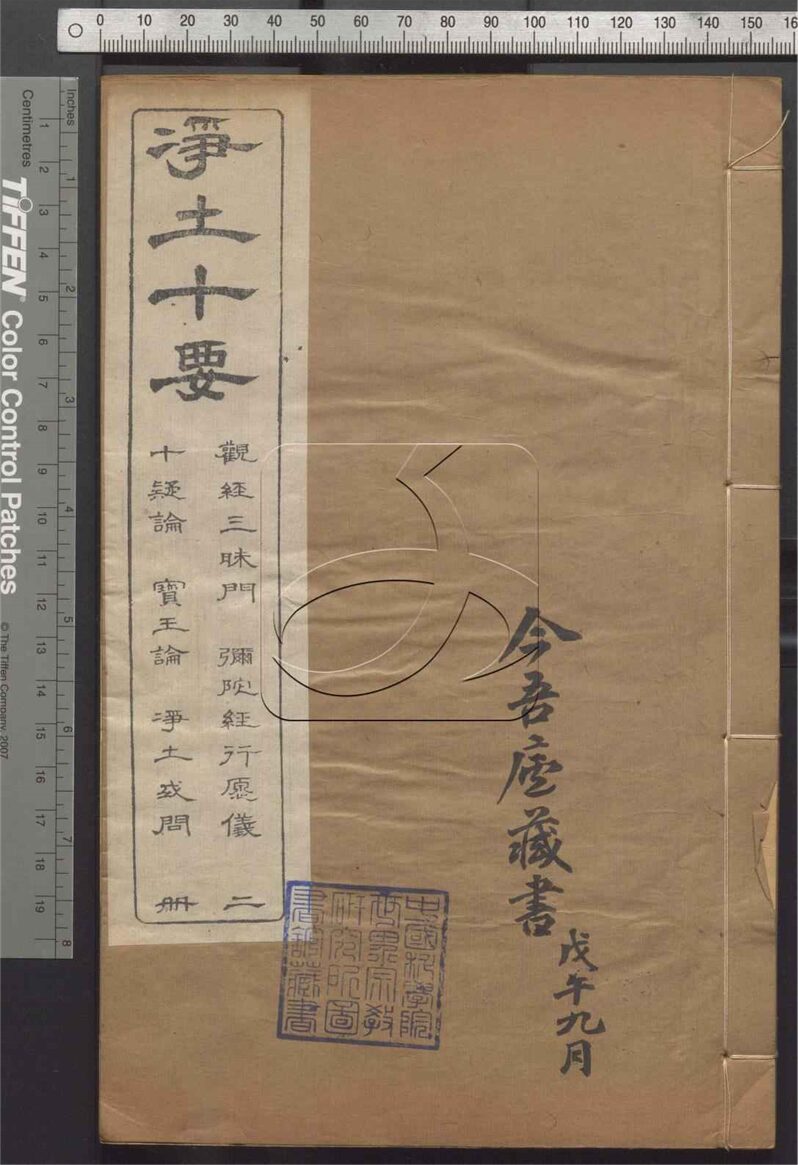 0 10 20 30 40 50 60 70 80 90 100 110 120 130 140 150 16
Inches
1 2 3 4 5 6 7 8
Centimetres
1 2 3 4 5 6 7 8 9 10 11 12 13 14 15 16 17 18 19
TIFFEN Color Control Patches
© The Tiffen Company, 2007
今吾廬藏書
戊午九月
淨土十要
觀經三昧門 彌陀經行愿儀 二
十疑論 寶王論 淨土或問 册
中國科學院
世界宗教
研究所圖
書館藏書